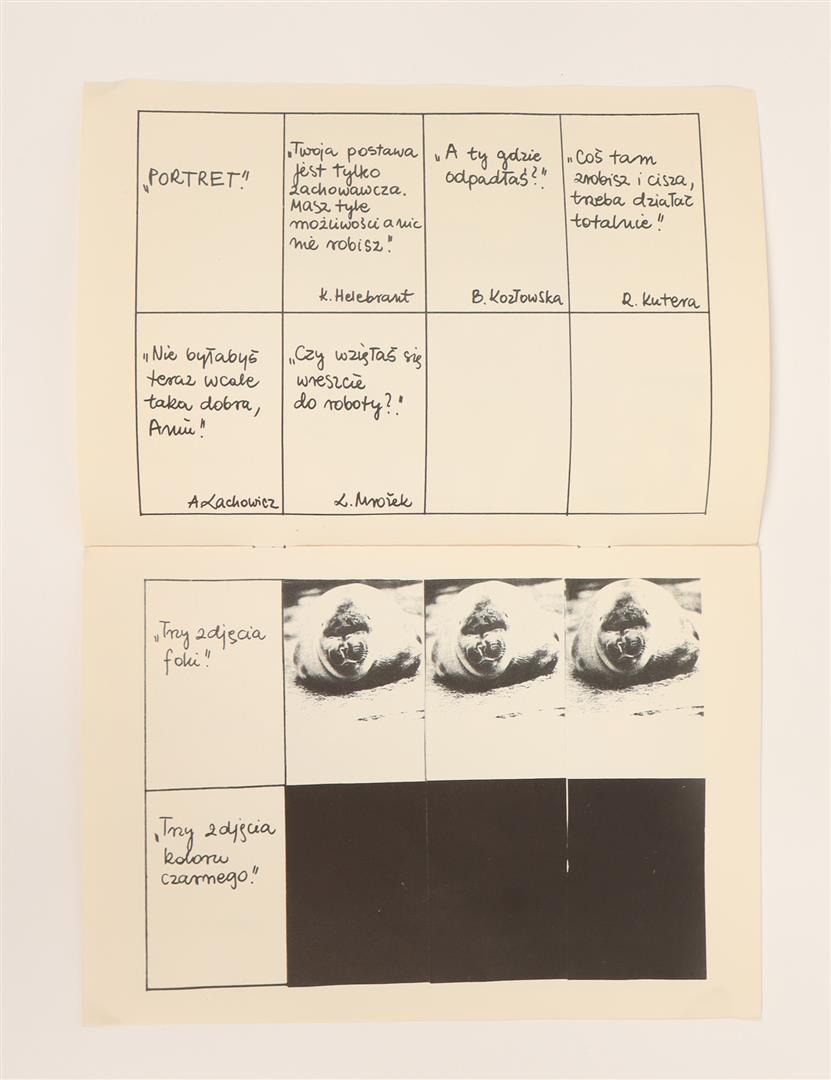 „PORTRET."
„Twoja postawa
jest tylko
zachowawcza.
Masz tyle
możliwości a nic
nie robisz."
K. Helebrant
„A ty gdzie
odpadłaś?"
B. Kozłowska
„Coś tam
zrobisz i cisza,
trzeba działać
totalnie!"
R. Kutera
„Nie byłabyś
teraz wcale
taka dobra,
Aniu!"
A Lachowicz
„Czy wzięłaś się
wreszcie
do roboty?."
L. Mrożek
„Trzy zdjęcia
foki."
„Trzy zdjęcia
koloru
czarnego."